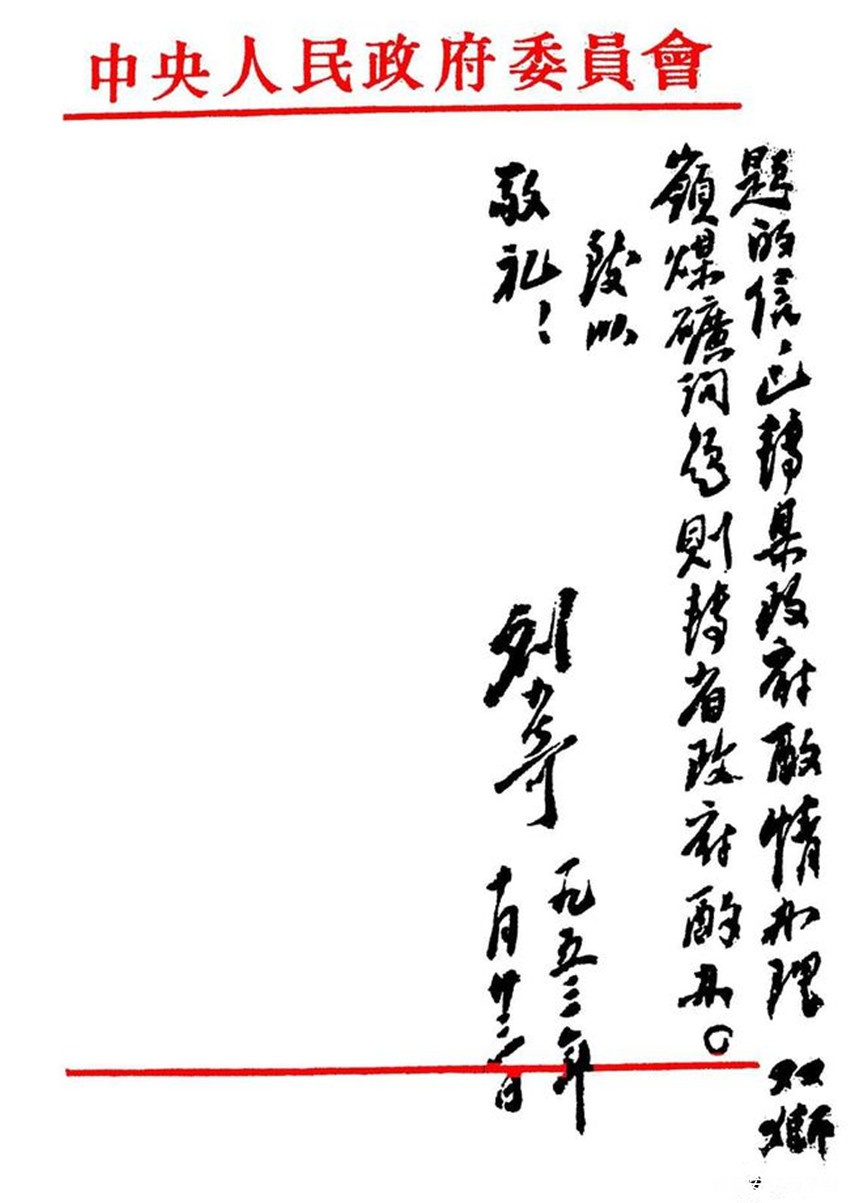 中央人民政府委員會
題的信,已轉县政府酌情办理 双獅
嶺煤礦问題則轉省政府酌办。
致以
敬礼!
刘少奇
一九五三年
十月廿六日